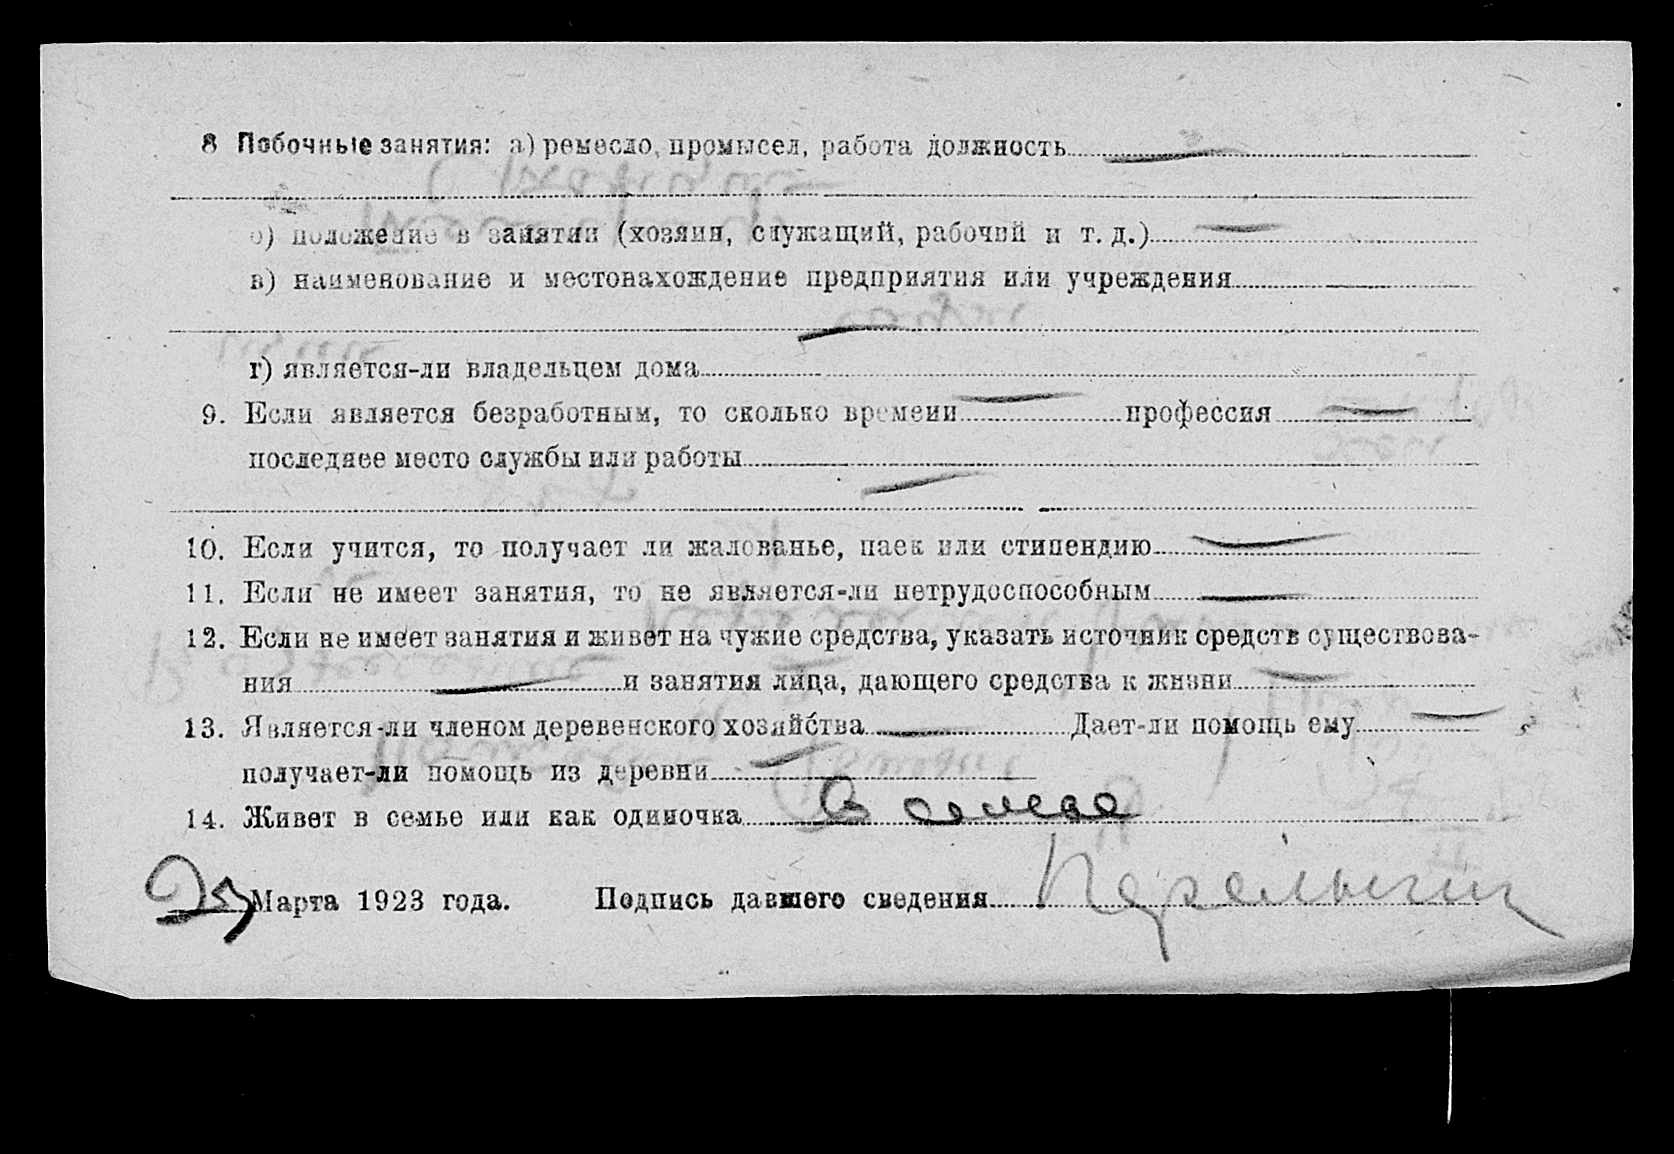 8 Побочные занятия: а) ремесло, промысел, работа должность
б) положение в занятии (хозяин, служащий, рабочий и т. д.)
в) наименование и местонахождение предприятия или учреждения
г) является-ли владельцем дома
9. Если является безработным, то сколько времени профессия
последнее место службы или работы
10. Если учится, то получает ли жалованье, паек или стипендию
11. Если не имеет занятия, то не является-ли нетрудоспособным
12. Если не имеет занятия и живет на чужие средства, указать источник средств существова-
ния и занятия лица, дающего средства к жизни
13. Является-ли членом деревенского хозяйства Дает-ли помощь ему
получает-ли помощь из деревни
14. Живет в семье или как одиночка в семье
25 Марта 1923 года. Подпись давшего сведения Перельман